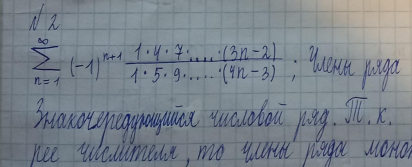 №2
∑_{n=1}^{∞} (-1)^{n+1} \frac{1·4·7·....·(3n-2)}{1·5·9·....·(4n-3)} ; Члены ряда
Знакочередующийся числовой ряд. Т.к.
рее числителя, то члены ряда мона